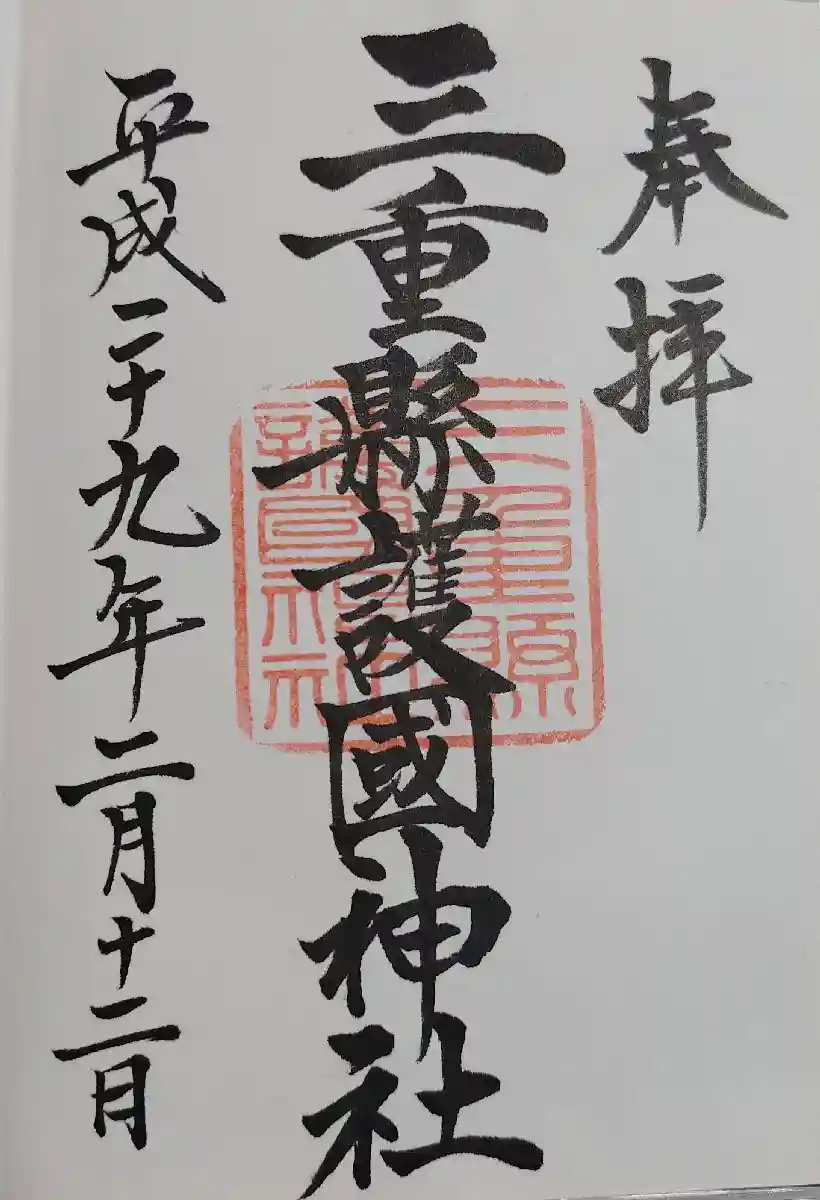 奉拝
三重縣護國神社
平成二十九年二月十二日
三重県護國神社